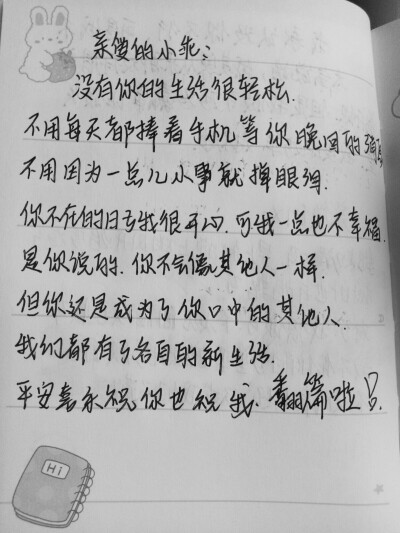 亲傻的小乖:
没有你的生活很轻松.
不用每天都捧着手机等你晚回的消息
不用因为一点儿小事就掉眼泪.
你不在的日子我很开心.可我一点也不幸福.
是你说的.你不会像其他人一样.
但你还是成为了你口中的其他人.
我们都有了各自的新生活.
平安喜乐祝你也祝我.翻篇啦!
Hi